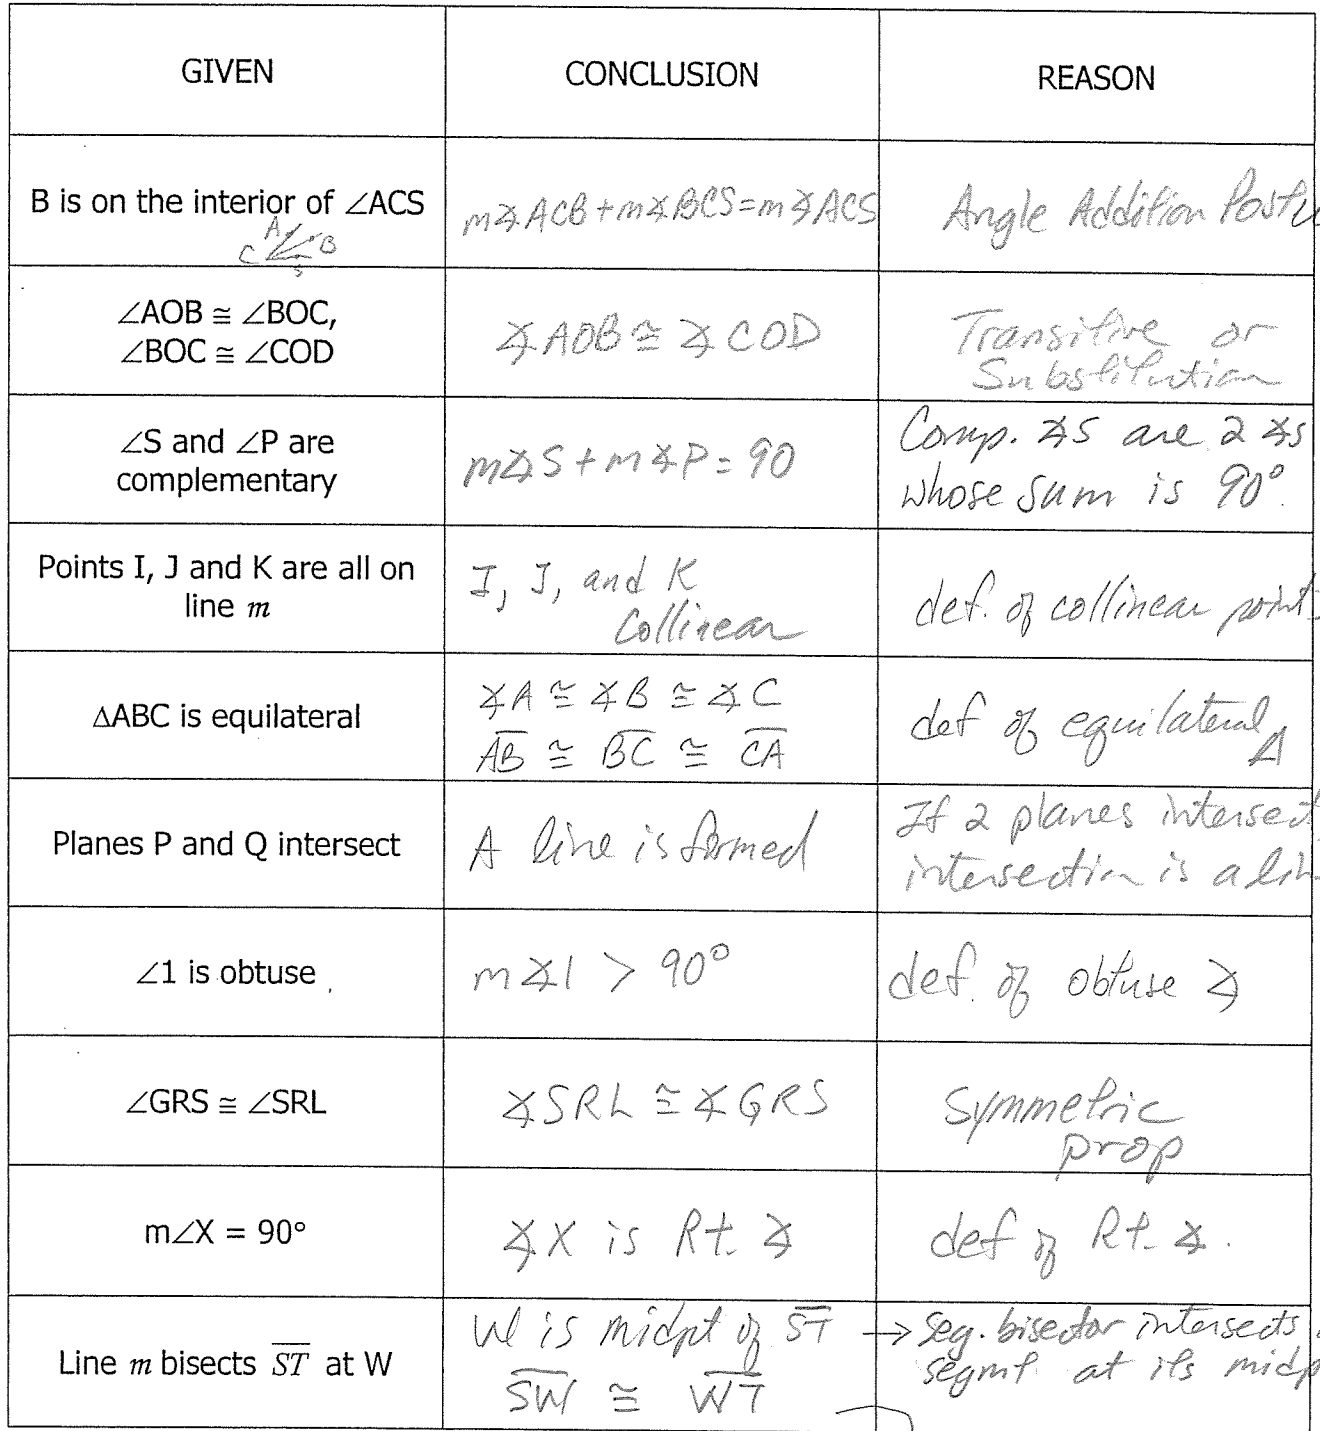 GIVEN
CONCLUSION
REASON
B is on the interior of ∠ACS
A
C
B
S
m∡ACB+m∡BCS=m∡ACS
Angle Addition Postu
∠AOB ≅ ∠BOC,
∠BOC ≅ ∠COD
∡AOB ≅ ∡COD
Transitive or
Substitution
∠S and ∠P are
complementary
m∡S + m∡P = 90
Comp. ∡s are 2 ∡s
whose sum is 90°.
Points I, J and K are all on
line m
I, J, and K
Collinear
def. of collinear points
ΔABC is equilateral
∡A ≅ ∡B ≅ ∡C
A̅B̅ ≅ B̅C̅ ≅ C̅A̅
def of equilateral Δ
Planes P and Q intersect
A line is formed
If 2 planes intersect
intersection is a lin
∠1 is obtuse
m∡1 > 90°
def. of obtuse ∡
∠GRS ≅ ∠SRL
∡SRL ≅ ∡GRS
Symmetric
prop
m∠X = 90°
∡X is Rt. ∡
def of Rt. ∡.
Line m bisects S̅T̅ at W
W is midpt of S̅T̅ →
S̅W̅ ≅ W̅T̅
seg. bisector intersects
segmt at its midp